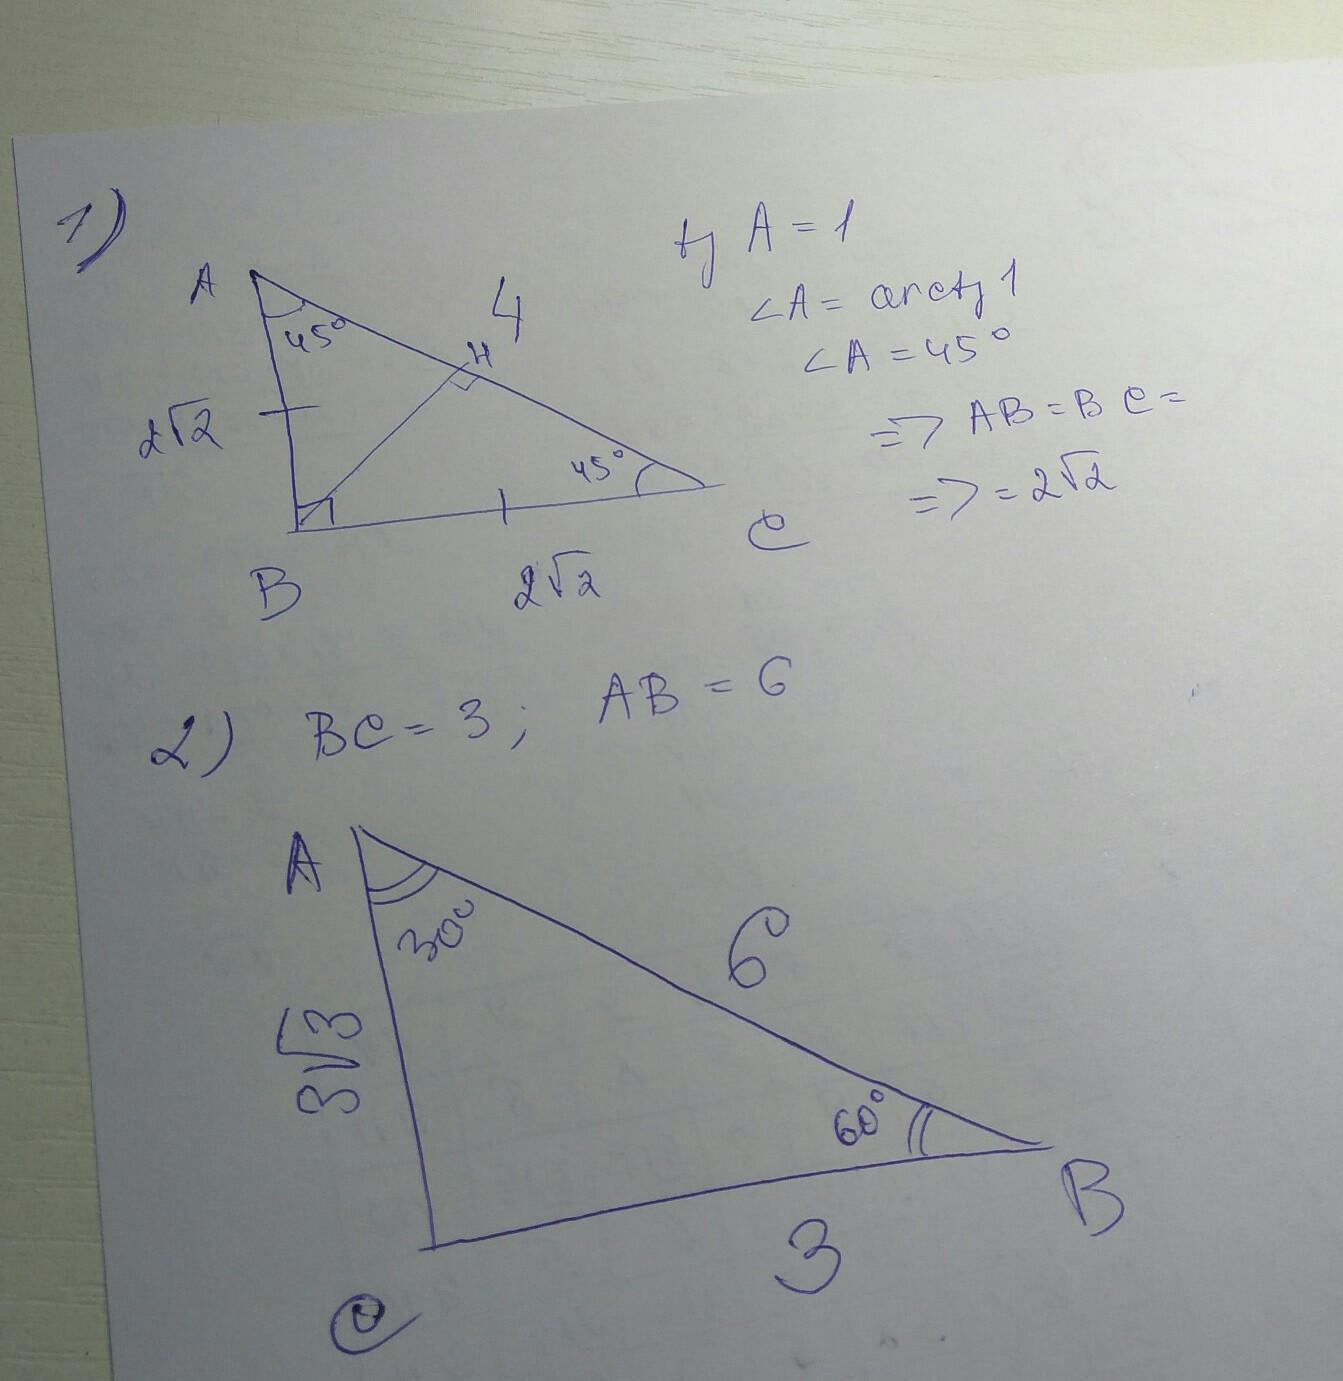 1)
A
4
tg A = 1
∠A = arctg 1
45°
H
∠A = 45°
2√2
45°
=> AB = BC =
=> = 2√2
C
B
2√2
2) BC = 3; AB = 6
A
30°
6
3√3
60°
B
3
C